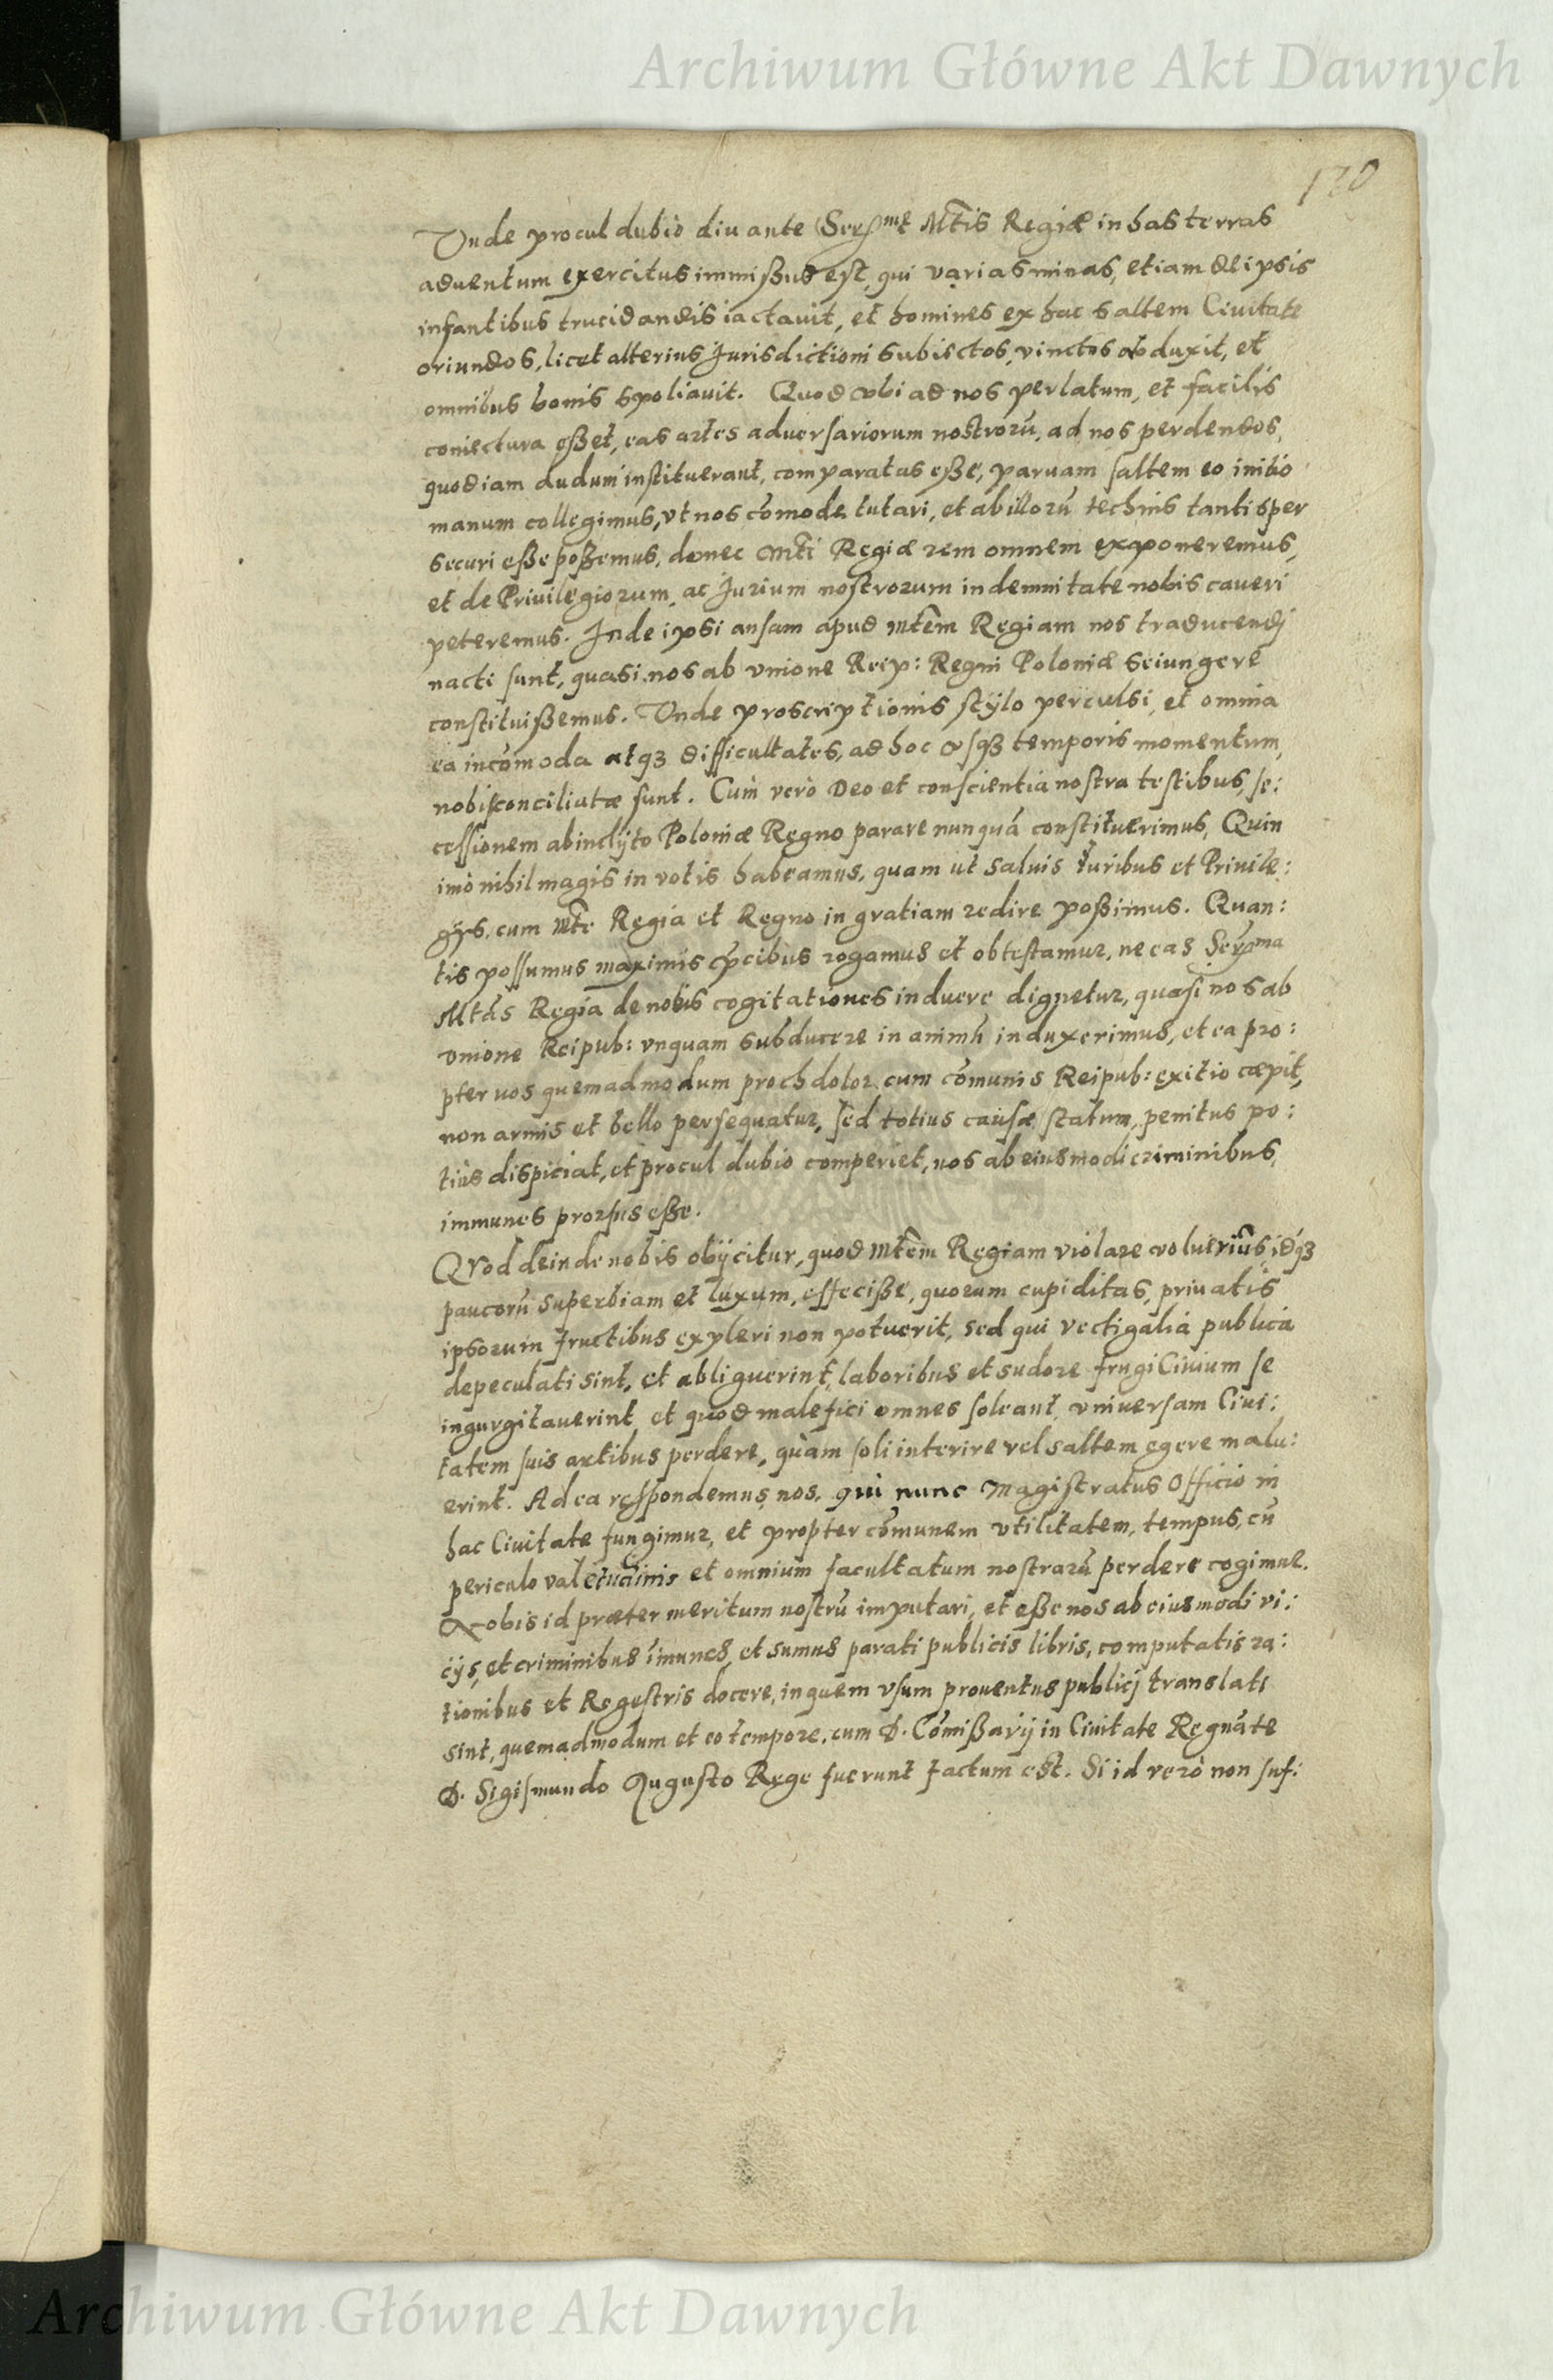 Archiwum Główne Akt Dawnych
120
Unde procul dubio diu ante Serſmę Mtis Regiæ in has terras
aduentum exercitus immißus eſt, qui varias minas, etiam de ipsis
infantibus trucidandis iactauit, et homines ex hac saltem Ciuitate
oriundos, licet alterius Jurisdictioni subiectos, vinctos abduxit, et
omnibus bonis spoliauit. Quod vbi ad nos perlatum, et facilis
coniectura eßet, eas artes aduerſariorum nostrorū, ad nos perdendos,
quod iam dudum inſtituerant, comparatas eße, paruam ſaltem eo initio
manum collegimus, vt nos cōmode tutari, et ab illorū technis tantisper
securi eße poßemus, donec Mti Regiæ rem omnem exponeremus,
et de Priuilegiorum, ac Jurium noſtrorum indemnitate nobis caueri
peteremus. Inde ipsi anſam apud Mtēm Regiam nos traducendj
nacti ſunt, quasi nos ab vnione Reip: Regni Poloniæ seiungere
conſtituißemus. Unde proscriptionis ſtylo perculsi, et omnia
ea incōmoda atq3 difficultates, ad hoc vſq3 temporis momentum,
nobis conciliatæ ſunt. Cùm verò Deo et conſcientia noſtra teſtibus, ſe:
ceſſionem ab inclÿto Poloniæ Regno parare nunquā conſtituerimus, Quin
imò nihil magis in votis habeamus, quam ut saluis Juribus et Priuile:
gijs, cum Mte Regia et Regno in gratiam redire poßimus. Quan:
tis poſſumus maximis p̄cibus rogamus et obteſtamur, ne eas Serma
Mtas Regia de nobis cogitationes induere dignetur, quaſi nos ab
vnione Reipub: vnquam subducere in animū induxerimus, et ea pro:
pter nos quemadmodum proch dolor cum cōmunis Reipub: exitio cæpit,
non armis et bello perſequatur, ſed totius cauſæ ſtatum, penitus po:
tiùs dispiciat, et procul dubio comperiet, nos ab eiusmodi criminibus,
immunes prorſus eße.
QVod deinde nobis obÿcitur, quod Mtēm Regiam violare voluerim9, idq3
paucorū superbiam et luxum, effeciße, quorum cupiditas, priuatis
ipsorum fructibus expleri non potuerit, sed qui vectigalia publica
depeculati sint, et abliguerint, laboribus et sudore frugi Ciuium ſe
ingurgitauerint, et quod malefici omnes ſoleant, vniuerſam Ciui:
tatem ſuis artibus perdere, quàm ſoli interire vel saltem egere malu:
erint. Ad ea reſpondemus nos, qui nunc Magiſtratus Officio in
hac Ciuitate fungimur, et propter cōmunem vtilitatem, tempus, cū
periculo valetudinis et omnium facultatum noſtrarū perdere cogimur.
Nobis id præter meritum noſtrū imputari, et eße nos ab eiusmodi vi:
cijs, et criminibus īmunes, et sumus parati publicis libris, computatis ra:
tionibus et Regeſtris docere, in quem vſum prouentus publicj translati
sint, quemadmodum et eo tempore, cum D. Cōmißarij in Ciuitate Regnāte
D. Sigiſmundo Auguſto Rege fuerunt factum est. Si id verò non ſuf:
Archiwum Główne Akt Dawnych